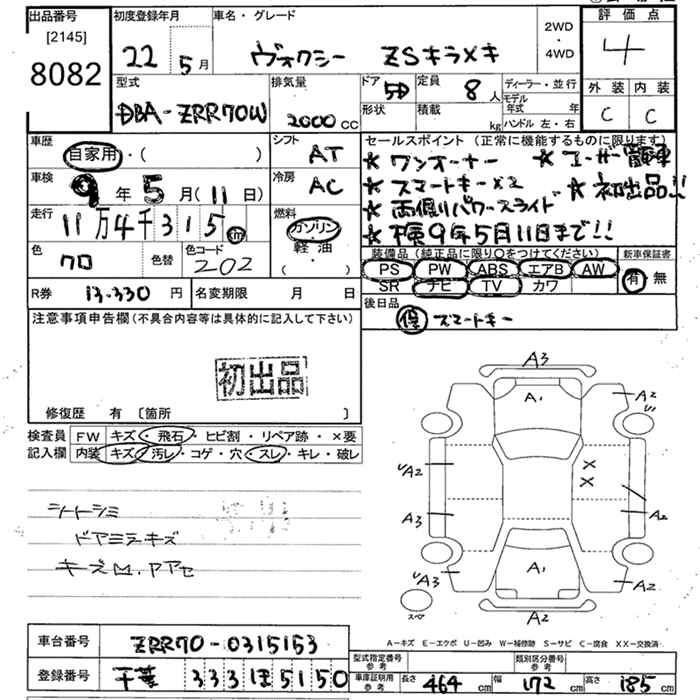 出品番号
[2145]
8082
初度登録年月
22 5月
車名・グレード
ヴォクシー ZSキラメキ
2WD
・
4WD
評価点
4
外装 内装
C C
型式
DBA-ZRR70W
排気量
2000 CC
ドア 5D
定員 8人
形状
積載 kg
ディーラー・並行
モデル年式 年
ハンドル 左・右
車歴
自家用・( )
シフト
AT
車検
9年5月(11日)
冷房
AC
走行
11万4千315 km
燃料
ガソリン
・
軽油
( )
色
クロ
色替
色コード
202
セールスポイント(正常に機能するものに限ります)
★ワンオーナー ★ユーザー買取車
★スマートキーx2 ★初出品!!
★両側パワースライド
★検9年5月11日まで!!
装備品(純正品に限り○をつけてください)
PS PW ABS エアB AW
SR ナビ TV カワ
新車保証書
有・無
R券 13.330円
名変期限 月 日
後日品
保 スマートキー
注意事項申告欄(不具合内容等は具体的に記入して下さい)
初出品
修復歴 有 〔箇所 〕
検査員
記入欄
FW キズ・飛石・ヒビ割・リペア跡・×要
内装 キズ・汚レ・コゲ・穴・スレ・キレ・破レ
シートシミ
ドアミラーキズ
キズM.アアセ
A3
A1
A2
U
A2
X
X
A3
A2
A3
A1
A2
スペア
A2
A-キズ E-エクボ U-凹み W-補修跡 S-サビ C-腐食 XX-交換済
車台番号 ZRR70-0315153
登録番号 千葉 333 ほ 5150
型式指定番号
参考
類別区分番号
参考
車庫証明用
参考
長さ 464cm 幅 172cm 高さ 185cm